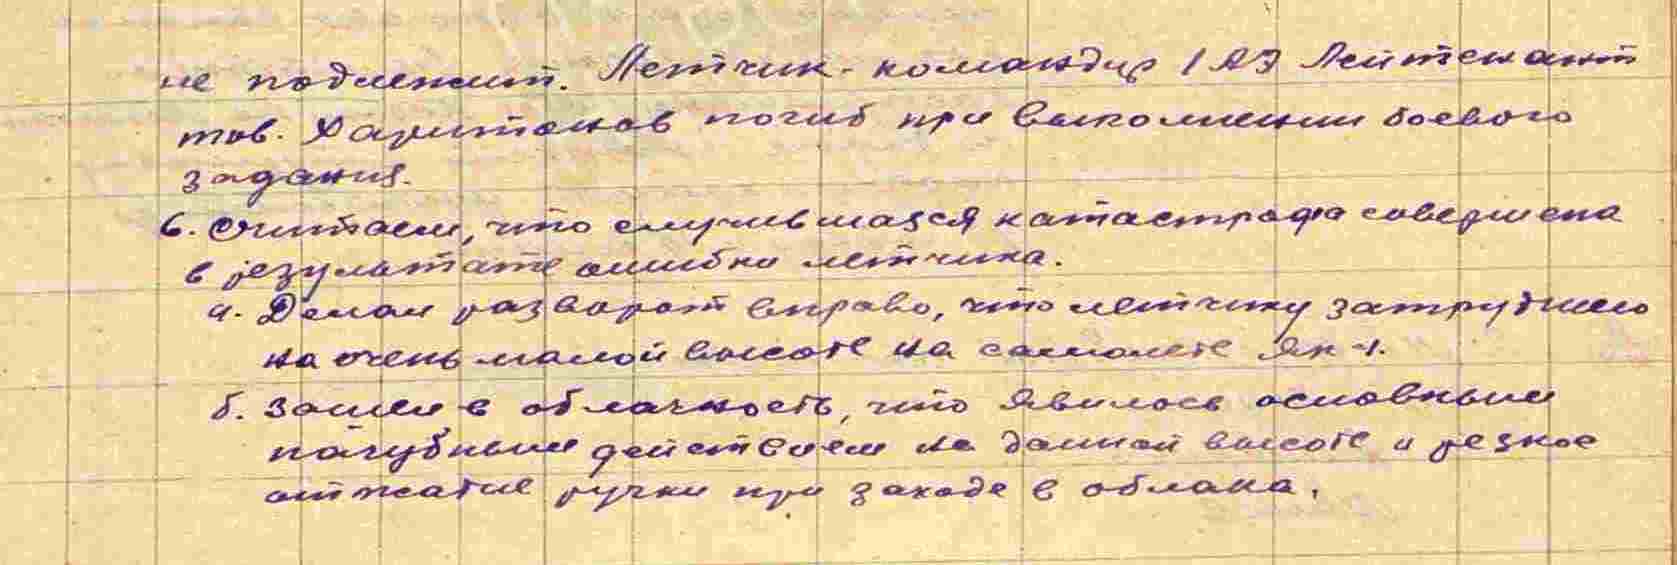 не подлежит. Летчик-командир 1 АЭ Лейтенант
тов. Харитонов погиб при выполнении боевого
задания.
6. Считаем, что случившаяся катастрофа совершена
в результате ошибки летчика.
а. Делал разворот вправо, что летчику затруднено
на очень малой высоте на самолете Як-1.
б. Зашел в облачность, что явилось основным
пагубным действием на данной высоте и резкое
отжатие ручки при заходе в облака.